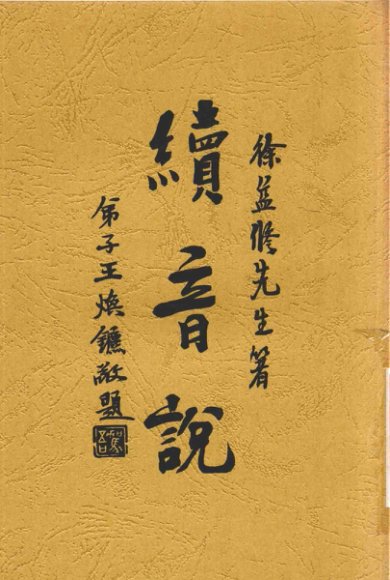 徐益修先生著
續音說
弟子王煥鑣敬題